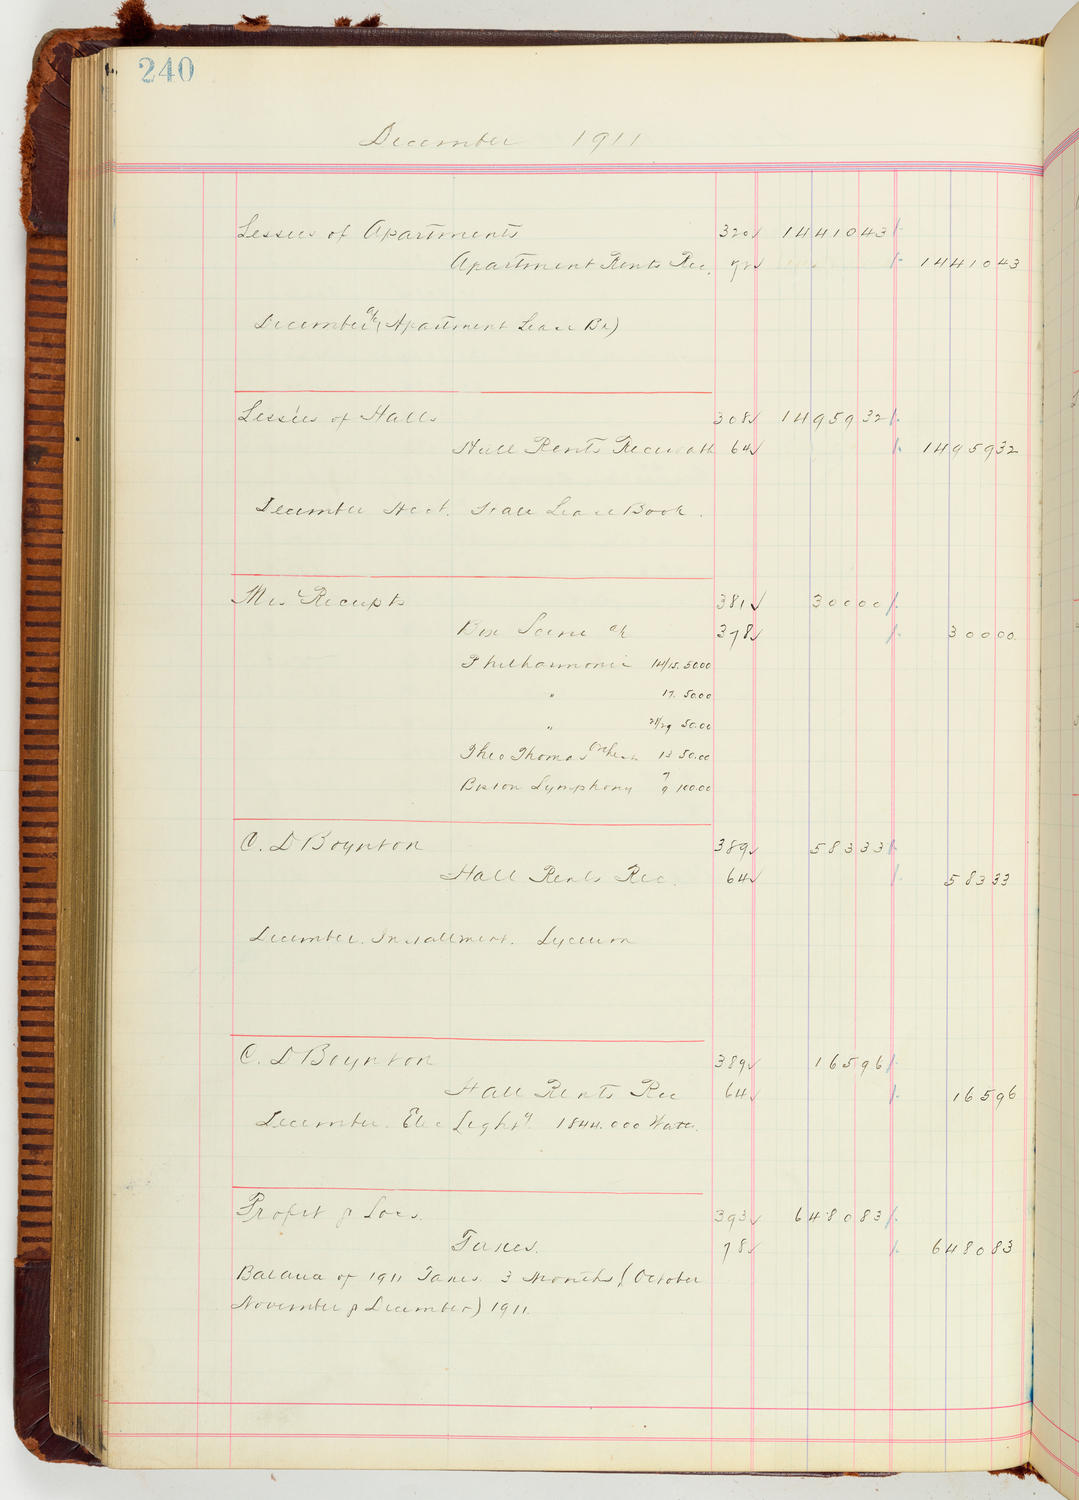 240
December 1911
Lessees of Apartments 320✓ 1441043
Apartment Rents Rec. 72✓ 1441043
December a/c (Apartment Lease Bk)
Lessees of Halls 308✓ 1495932
Hall Rents Receivable 64✓ 1495932
December Acct. Hall Lease Book.
Mis Receipts 381✓ 30000
Box Scene a/c 378✓ 30000
Philharmonic 14/15. 50.00
" 17. 50.00
" 50.00
Theo Thomas Orches 13 50.00
Boston Symphony 7 9 100.00
C. D Boynton 389✓ 58333
Hall Rents Rec. 64✓ 58333
December. Installment. Lyceum
C. D Boynton 389✓ 16596
Hall Rents Rec 64✓ 16596
December. Elec Light'g 1844.000 Watts.
Profit & Loss. 393✓ 648083
Taxes. 78✓ 648083
Balance of 1911 Taxes 3 Months (October
November & December) 1911.